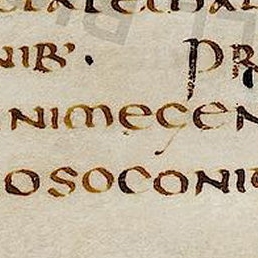 NIB·   PR
NIMEGEN
OSOCONI